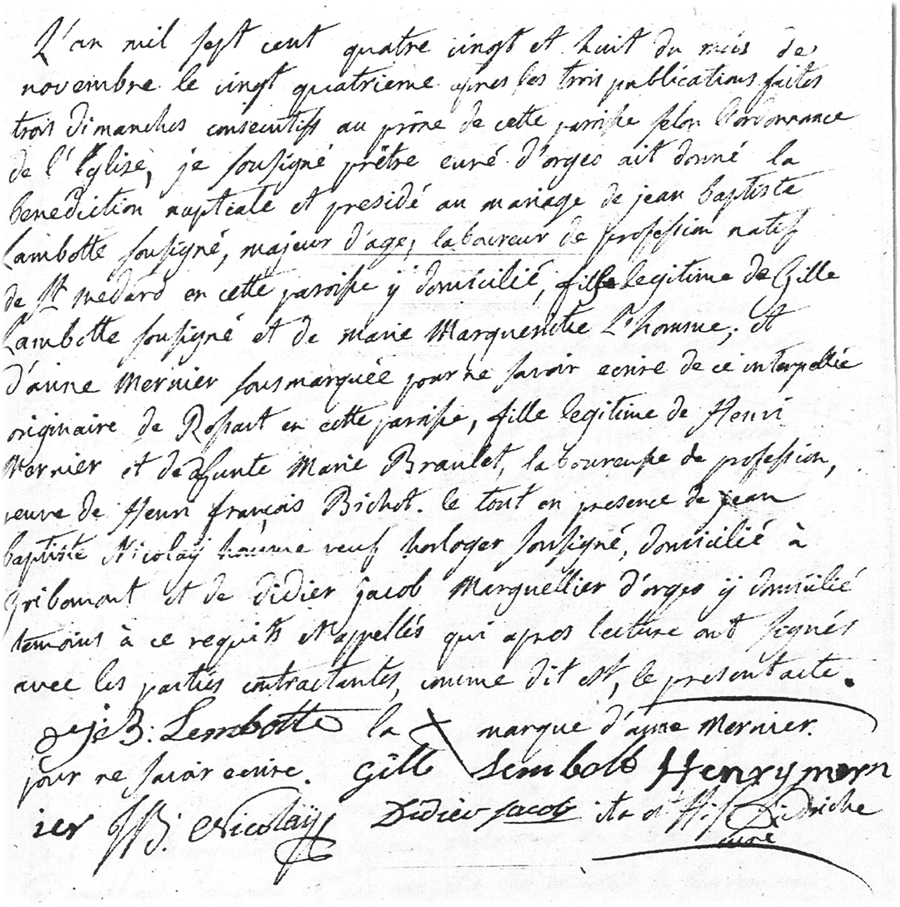 L'an mil sept cent quatre vingt et huit du mois de
novembre le vingt quatrieme apres les trois publications faites
trois dimanches consecutifs au prône de cette paroisse selon l'ordonnance
de l'Eglise, je sousigné prêtre curé d'orgeo ait donné la
benediction nuptiale et presidé au mariage de jean baptiste
Lambotte sousigné, majeur d'age, laboureur de profession natif
de St medard en cette paroisse ÿ domicilié, fils legitime de Gille
Lambotte sousigné et de marie Marguerite L'homme, et
d'anne Mernier sousmarquée pour ne savoir ecrire de ce interpellée
originaire de Rossart en cette paroisse, fille legitime de Henri
Mernier et defunte Marie Braulet, laboureuse de profession,
veuve de Henri françois Bichot. le tout en presence de jean
baptiste Nicolaÿ homme veuf horloger sousigné, domicilié à
gribomont et de didier jacob Marguellier d'orgeo ÿ domicilié
temoins à ce requits et appellés qui apres lecture ont signés
avec les parties contractantes, comme dit est, le present acte.
j: B: Lembotte la X marque d'anne Mernier.
pour ne savoir ecrire. Gille Lembotte Henry mern
ier JB: Nicolaÿ Didier jacob ita est Didriche
curé